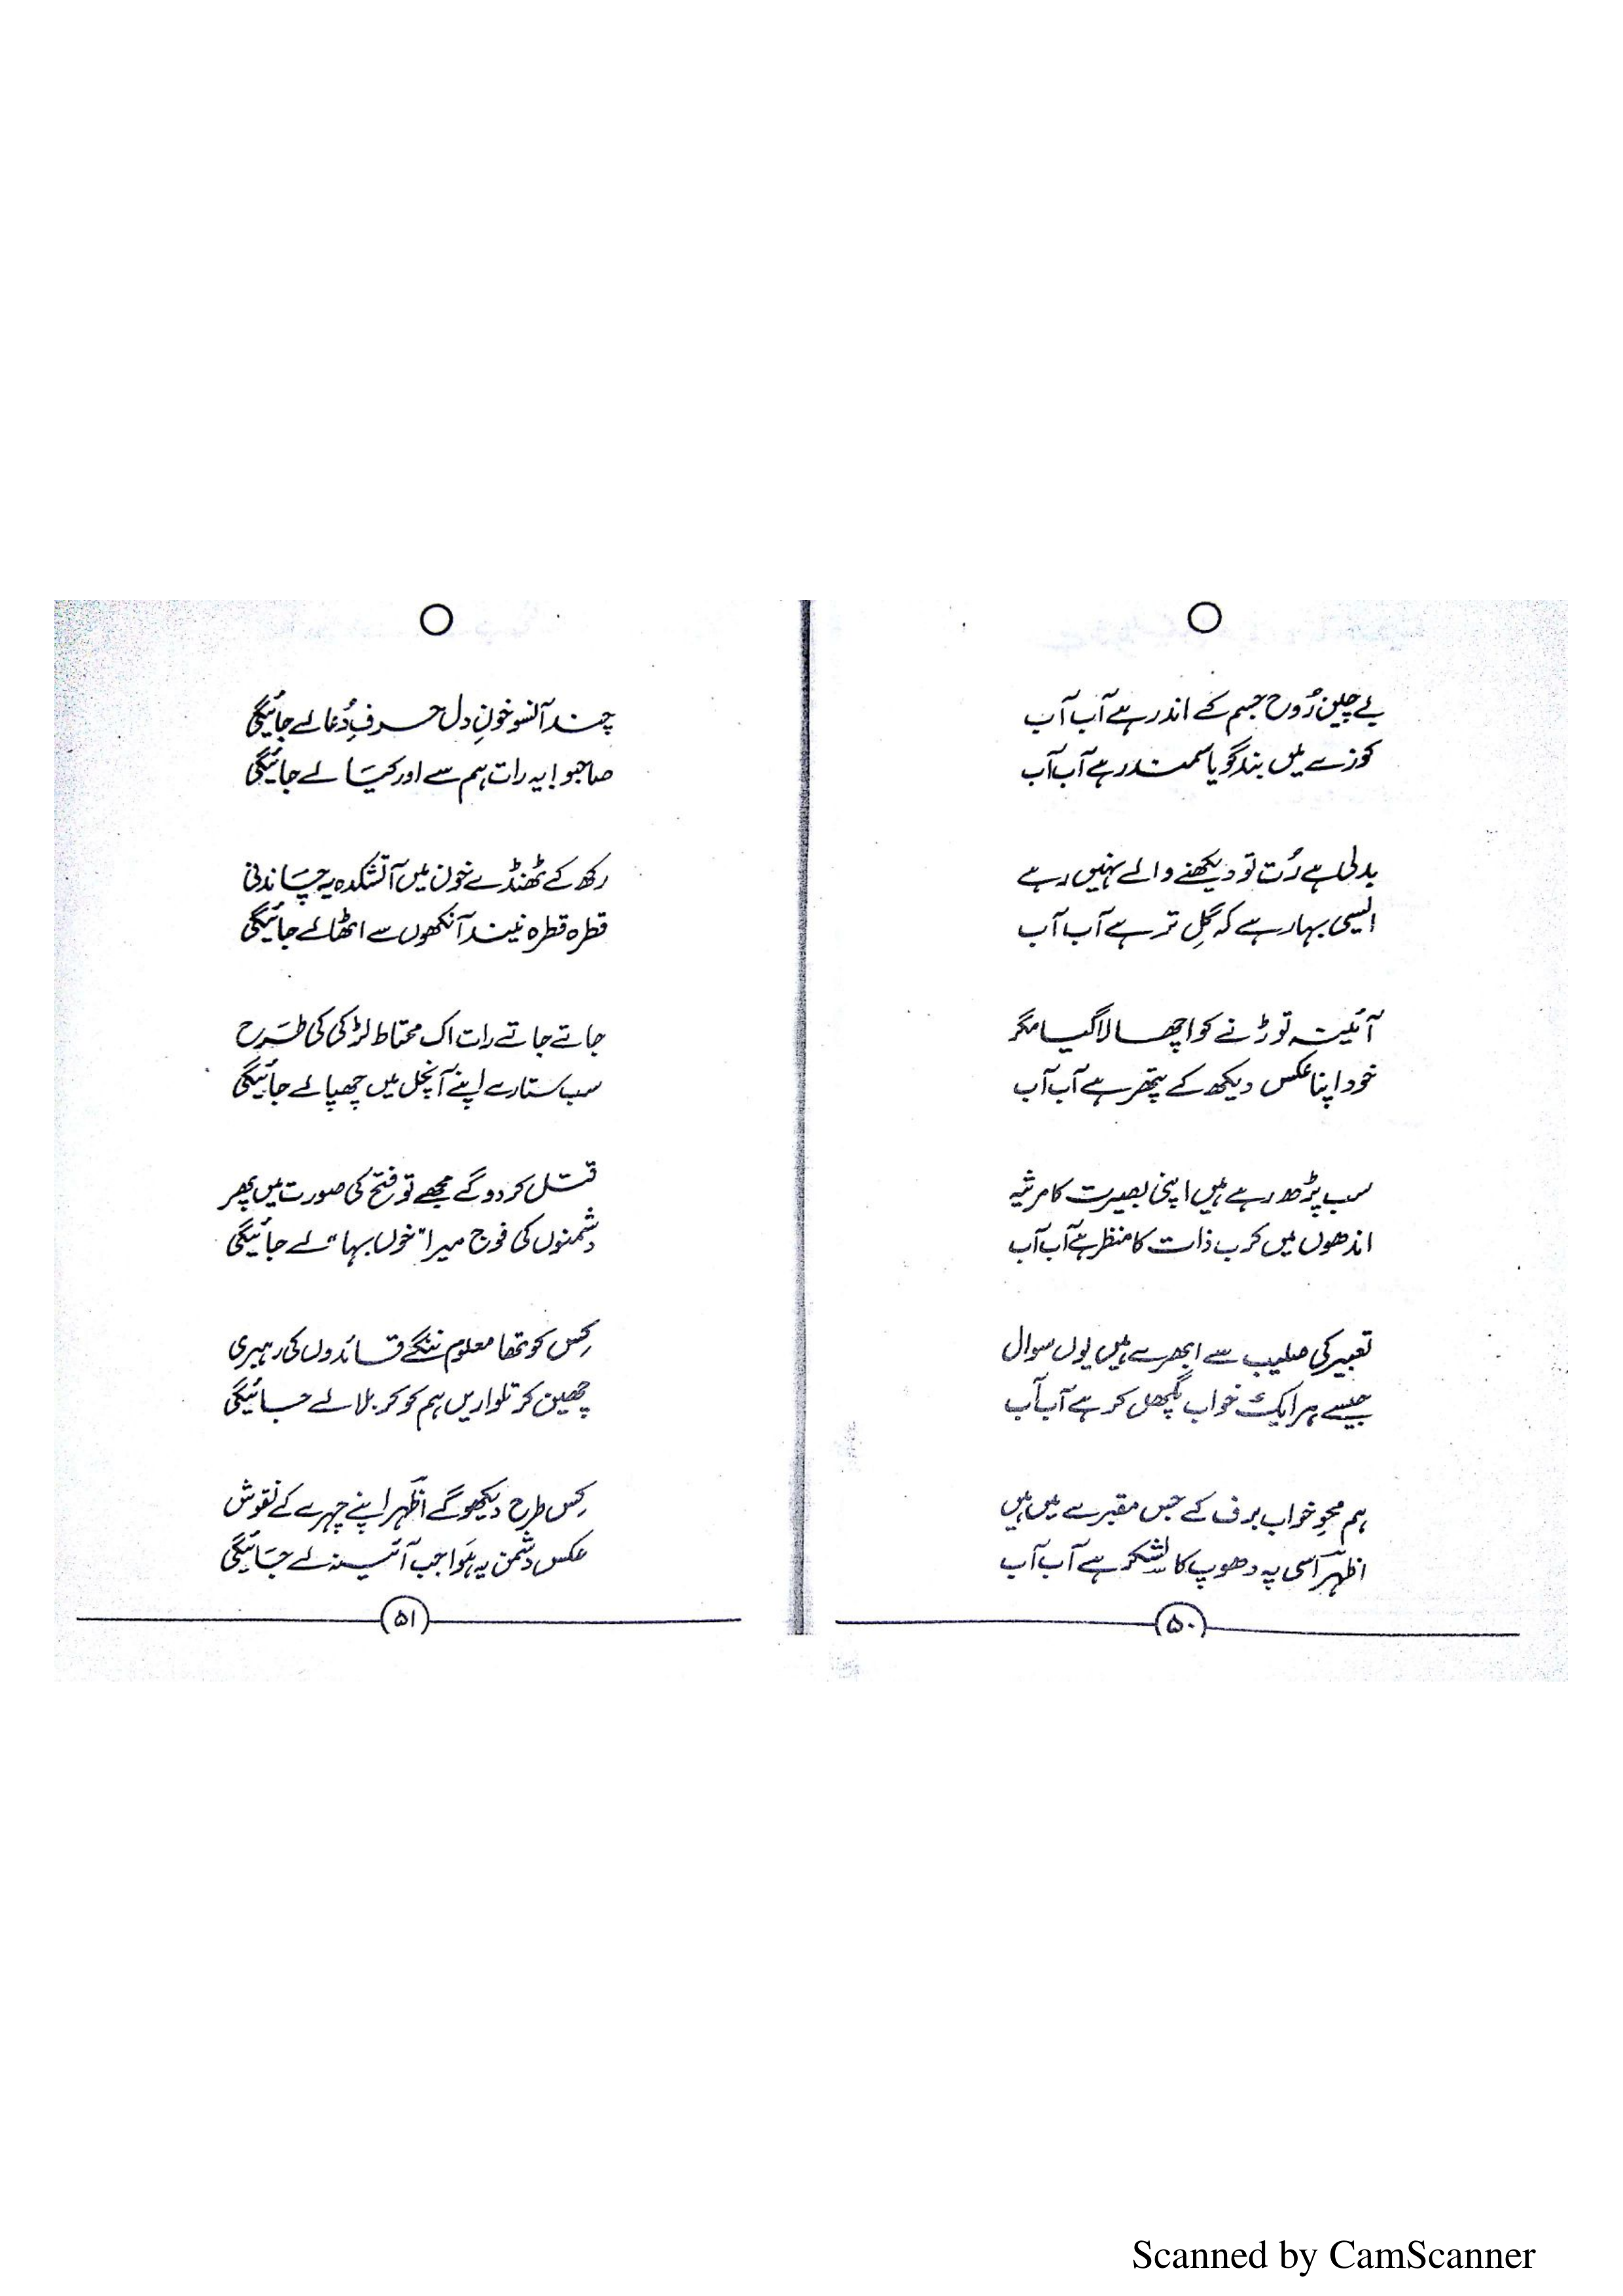 بے چین رُوح جسم کے اندر ہے آب آب
کوزے میں بند گویا سمندر ہے آب آب
بدلی ہے رُت تو دیکھنے والے نہیں رہے
ایسی بہار ہے کہ گلِ تر ہے آب آب
آئینہ توڑنے کو اچھالا گیا مگر
خود اپنا عکس دیکھ کے پتھر ہے آب آب
سب پڑھ رہے ہیں اپنی بصیرت کا مرثیہ
اندھوں میں کربِ ذات کا منظر ہے آب آب
تعبیر کی صلیب سے ابھرے ہیں یوں سوال
جیسے ہر ایک خواب پگھل کر ہے آب آب
ہم محوِ خواب برف کے جس مقبرے میں ہیں
اظہرؔ اسی پہ دھوپ کا لشکر ہے آب آب
۵۰
چند آنسو خونِ دل حرفِ دُعا لے جائیگی
صاحبو! یہ رات ہم سے اور کیا لے جائیگی
رکھ کے ٹھنڈے خون میں آتشکدہ یہ چاندنی
قطرہ قطرہ نیند آنکھوں سے اٹھا لے جائیگی
جاتے جاتے رات اک محتاط لڑکی کی طرح
سب ستارے اپنے آنچل میں چھپا لے جائیگی
قتل کر دو گے مجھے تو فتح کی صورت میں پھر
دشمنوں کی فوج میرا "خوں بہا" لے جائیگی
کِس کو تھا معلوم ننگے قائدوں کی رہبری
چھین کر تلواریں ہم کو کربلا لے جائیگی
کِس طرح دیکھو گے اظہرؔ اپنے چہرے کے نقوش
عکس دشمن یہ ہَوا جب آئینہ لے جائیگی
۵۱
Scanned by CamScanner